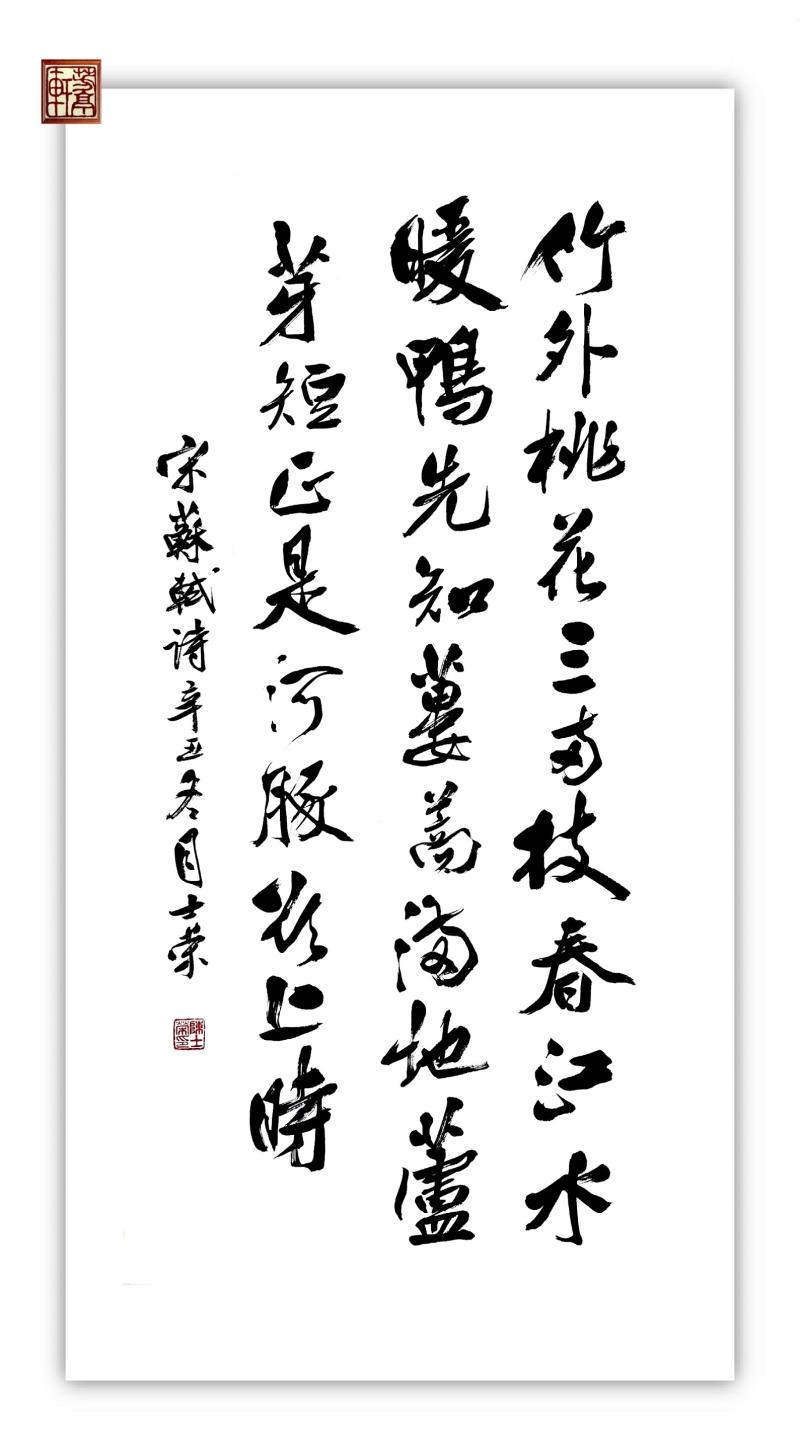 竹外桃花三两枝春江水
暖鸭先知蒌蒿满地蘆
芽短正是河豚欲上時
宋蘇軾诗辛丑冬月士荣
陳士榮印